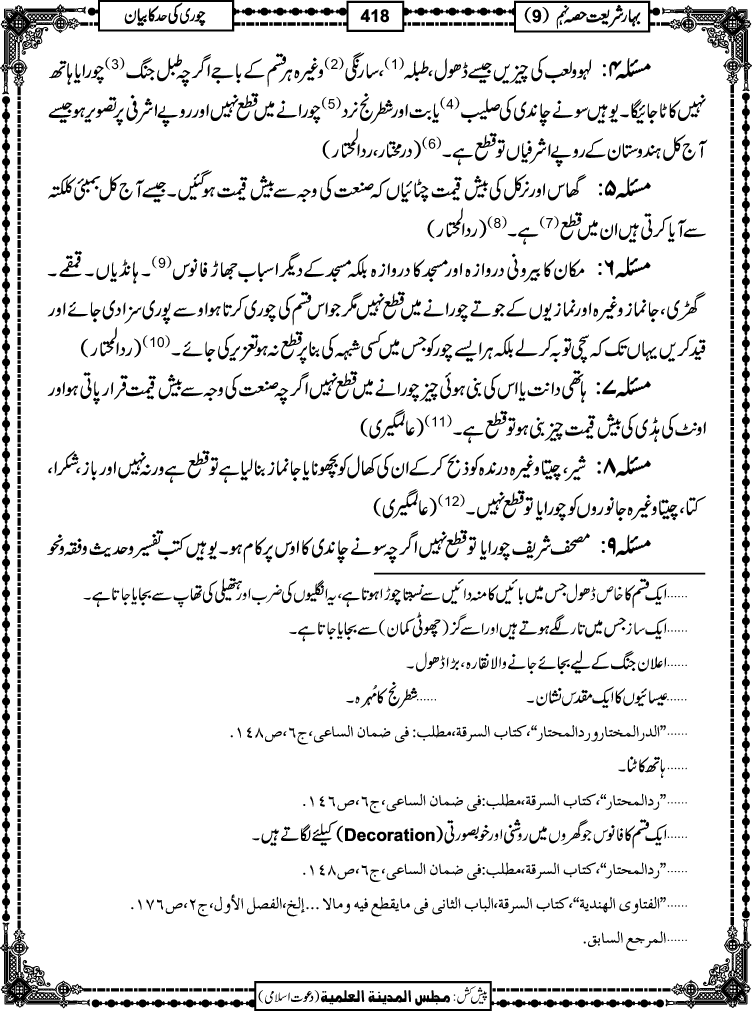 بہار شریعت حصہ نہم (9)
418
چوری کی حد کا بیان
مسئلہ ۴: لہو ولعب کی چیزیں جیسے ڈھول، طبلہ(1)، سارنگی(2) وغیرہ ہر قسم کے باجے اگرچہ طبل جنگ(3) چورایا ہاتھ
نہیں کاٹا جائیگا۔ یوہیں سونے چاندی کی صلیب(4) یا بت اور شطرنج نرد(5) چورانے میں قطع نہیں اور روپے اشرفی پر تصویر ہو جیسے
آج کل ہندوستان کے روپے اشرفیاں تو قطع ہے۔(6) (درمختار، ردالمحتار)
مسئلہ ۵: گھاس اور نرکل کی بیش قیمت چٹائیاں کہ صنعت کی وجہ سے بیش قیمت ہوگئیں۔ جیسے آج کل بمبئی کلکتہ
سے آیا کرتی ہیں ان میں قطع(7) ہے۔(8) (ردالمحتار)
مسئلہ ۶: مکان کا بیرونی دروازہ اور مسجد کا دروازہ بلکہ مسجد کے دیگر اسباب جھاڑ فانوس(9)۔ ہانڈیاں۔ قمقمے۔
گھڑی، جانماز وغیرہ اور نمازیوں کے جوتے چورانے میں قطع نہیں مگر جو اس قسم کی چوری کرتا ہو اوسے پوری سزا دی جائے اور
قید کریں یہاں تک کہ سچی توبہ کرلے بلکہ ہر ایسے چور کو جس میں کسی شبہہ کی بنا پر قطع نہ ہو تعزیر کی جائے۔(10) (ردالمحتار)
مسئلہ ۷: ہاتھی دانت یا اس کی بنی ہوئی چیز چورانے میں قطع نہیں اگرچہ صنعت کی وجہ سے بیش قیمت قرار پاتی ہو اور
اونٹ کی ہڈی کی بیش قیمت چیز بنی ہو تو قطع ہے۔(11) (عالمگیری)
مسئلہ ۸: شیر، چیتا وغیرہ درندہ کو ذبح کرکے ان کی کھال کو بچھونا یا جانماز بنالیا ہے تو قطع ہے ورنہ نہیں اور باز، شکرا،
کتا، چیتا وغیرہ جانوروں کو چورایا تو قطع نہیں۔(12) (عالمگیری)
مسئلہ ۹: مصحف شریف چورایا تو قطع نہیں اگرچہ سونے چاندی کا اوس پر کام ہو۔ یوہیں کتب تفسیر وحدیث وفقہ ونحو
......ایک قسم کا خاص ڈھول جس میں بائیں کا منہ دائیں سے نسبتا چوڑا ہوتا ہے، یہ انگلیوں کی ضرب اور ہتھیلی کی تھاپ سے بجایا جاتا ہے۔
......ایک ساز جس میں تار لگے ہوتے ہیں اور اسے گز (چھوٹی کمان) سے بجایا جاتا ہے۔
......اعلان جنگ کے لیے بجائے جانے والا نقارہ، بڑا ڈھول۔
......عیسائیوں کا ایک مقدس نشان۔ ......شطرنج کا مُہرہ۔
......”الدرالمختار وردالمحتار“، کتاب السرقة،مطلب: فی ضمان الساعی،ج٦،ص١٤٨.
......ہاتھ کاٹنا۔
......”ردالمحتار“، کتاب السرقة،مطلب:فی ضمان الساعی،ج٦،ص١٤٦.
......ایک قسم کا فانوس جو گھروں میں روشنی اور خوبصورتی (Decoration) کیلئے لگاتے ہیں۔
......”ردالمحتار“، کتاب السرقة،مطلب:فی ضمان الساعی،ج٦،ص١٤٨.
......”الفتاوی الھندیة“، کتاب السرقة،الباب الثانی فی مایقطع فیه ومالا ...إلخ،الفصل الأول،ج٢،ص١٧٦.
......المرجع السابق.
پیش کش: مجلس المدینة العلمیة (دعوت اسلامی)